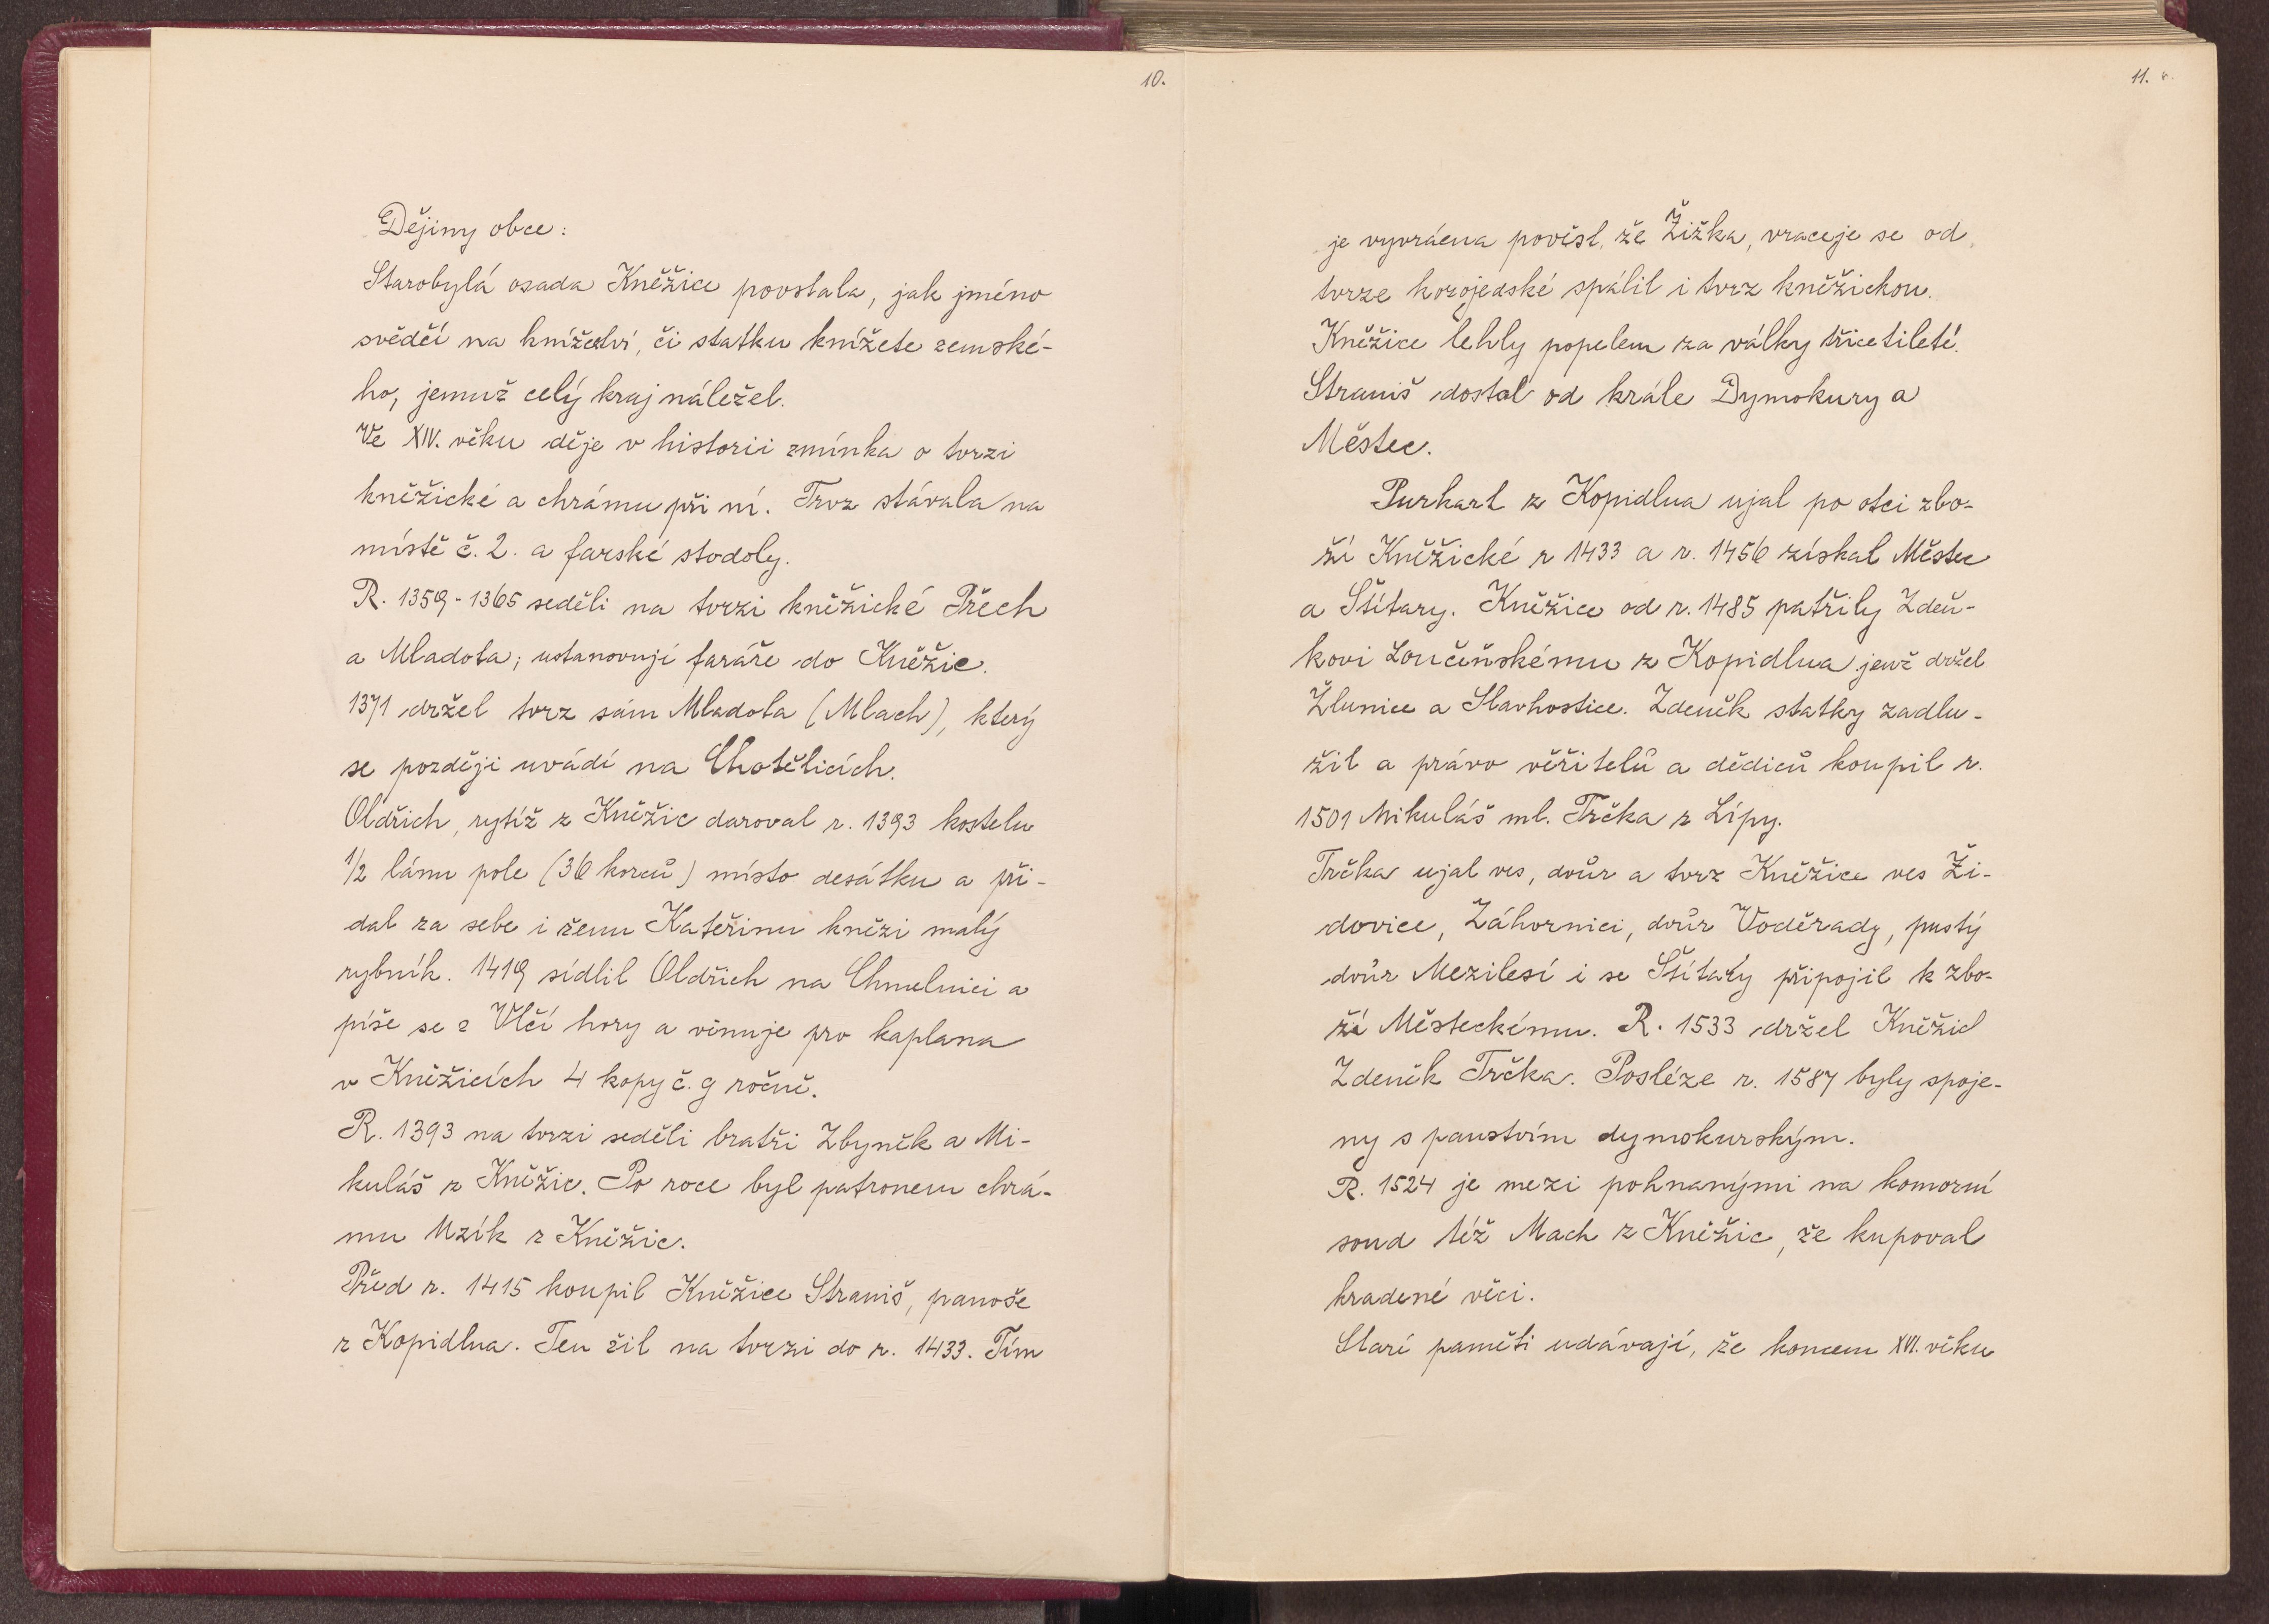 10.
Dějiny obce:
Starobylá osada Kněžice povstala, jak jméno
svědčí na knížetví, či statku knížete zemské-
ho, jemuž celý kraj náležel.
Ve XIV. věku děje v historii zmínka o tvrzi
kněžické a chrámu při ní. Tvrz stávala na
místě č. 2. a farské stodoly.
R. 1359-1365 seděli na tvrzi kněžické Přech
a Mladota; ustanovují faráře do Kněžic.
1371 držel tvrz sám Mladota (Mlach), který
se později uvádí na Chotělicích.
Oldřich, rytíž z Kněžic daroval r. 1393 kostelu
1/2 lánu pole (36 korců) místo desátku a při-
dal za sebe i ženu Kateřinu knězi malý
rybník. 1419 sídlil Oldřich na Chmelnici a
píše se z Vlčí hory a věnuje pro kaplana
v Kněžicích 4 kopy č. g ročně.
R. 1393 na tvrzi seděli bratři Zbyněk a Mi-
kuláš z Kněžic. Po roce byl patronem chrá-
mu Mzík z Kněžic.
Před r. 1415 koupil Kněžice Straniš, panoše
z Kopidlna. Ten žil na tvrzi do r. 1433. Tím
11.
je vyvrácena pověst, že Žižka, vraceje se od
tvrze kozojedské spálil i tvrz kněžickou.
Kněžice lehly popelem za války třicetileté.
Straniš dostal od krále Dymokury a
Městec.
Purkart z Kopidlna ujal po otci zbo-
ží Kněžické r 1433 a r. 1456 získal Městec
a Štítary. Kněžice od r. 1485 patřily Zdeň-
kovi Loučeňskému z Kopidlna jenž držel
Žlunice a Slavhostice. Zdeněk statky zadlu-
žil a právo věřitelů a dědiců koupil r.
1501 Mikuláš ml. Trčka z Lípy.
Trčka ujal ves, dvůr a tvrz Kněžice ves Ži-
dovice, Záhornici, dvůr Voděrady, pustý
dvůr Mezilesí i se Štítary připojil k zbo-
ží Městeckému. R. 1533 držel Kněžice
Zdeněk Trčka. Posléze r. 1587 byly spoje-
ny s panstvím dymokurským.
R. 1524 je mezi pohnanými na komorní
soud též Mach z Kněžic, že kupoval
kradené věci.
Staré paměti udávají, že koncem XVI. věku